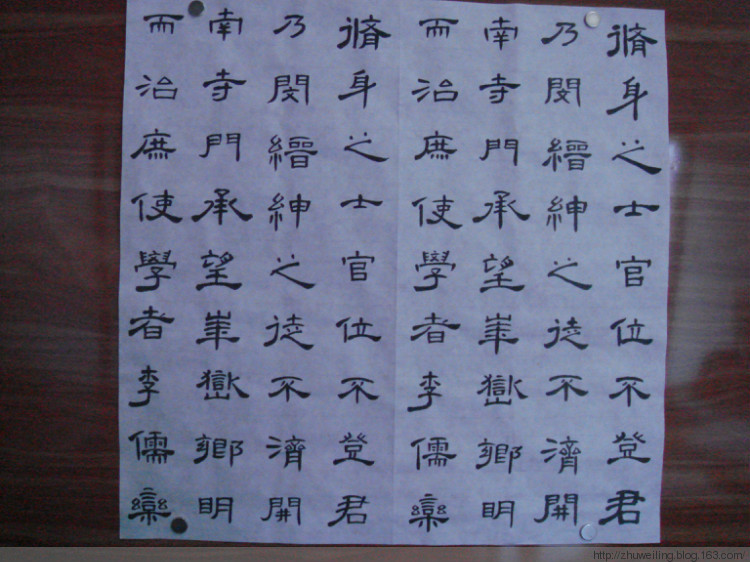 脩身之士官位不登君
乃閔縉紳之徒不濟開
南寺門承望華嶽鄉明
而治庶使學者李儒欒
脩身之士官位不登君
乃閔縉紳之徒不濟開
南寺門承望華嶽鄉明
而治庶使學者李儒欒
http://zhuweiling.blog.163.com/